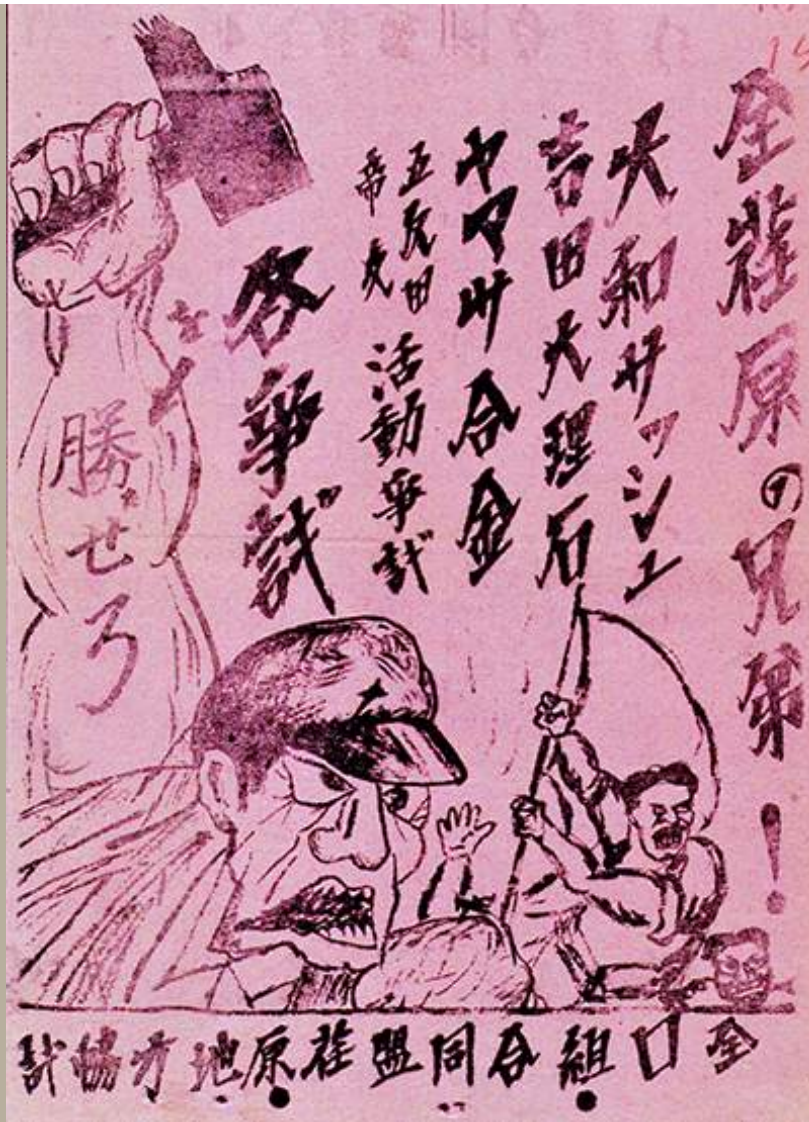 全荏原の兄弟!
大和サッシュ
吉田大理石
ヤマサ合金
五反田
活動争議
各争議
を
勝たせろ
全日組合同盟荏原地方協議